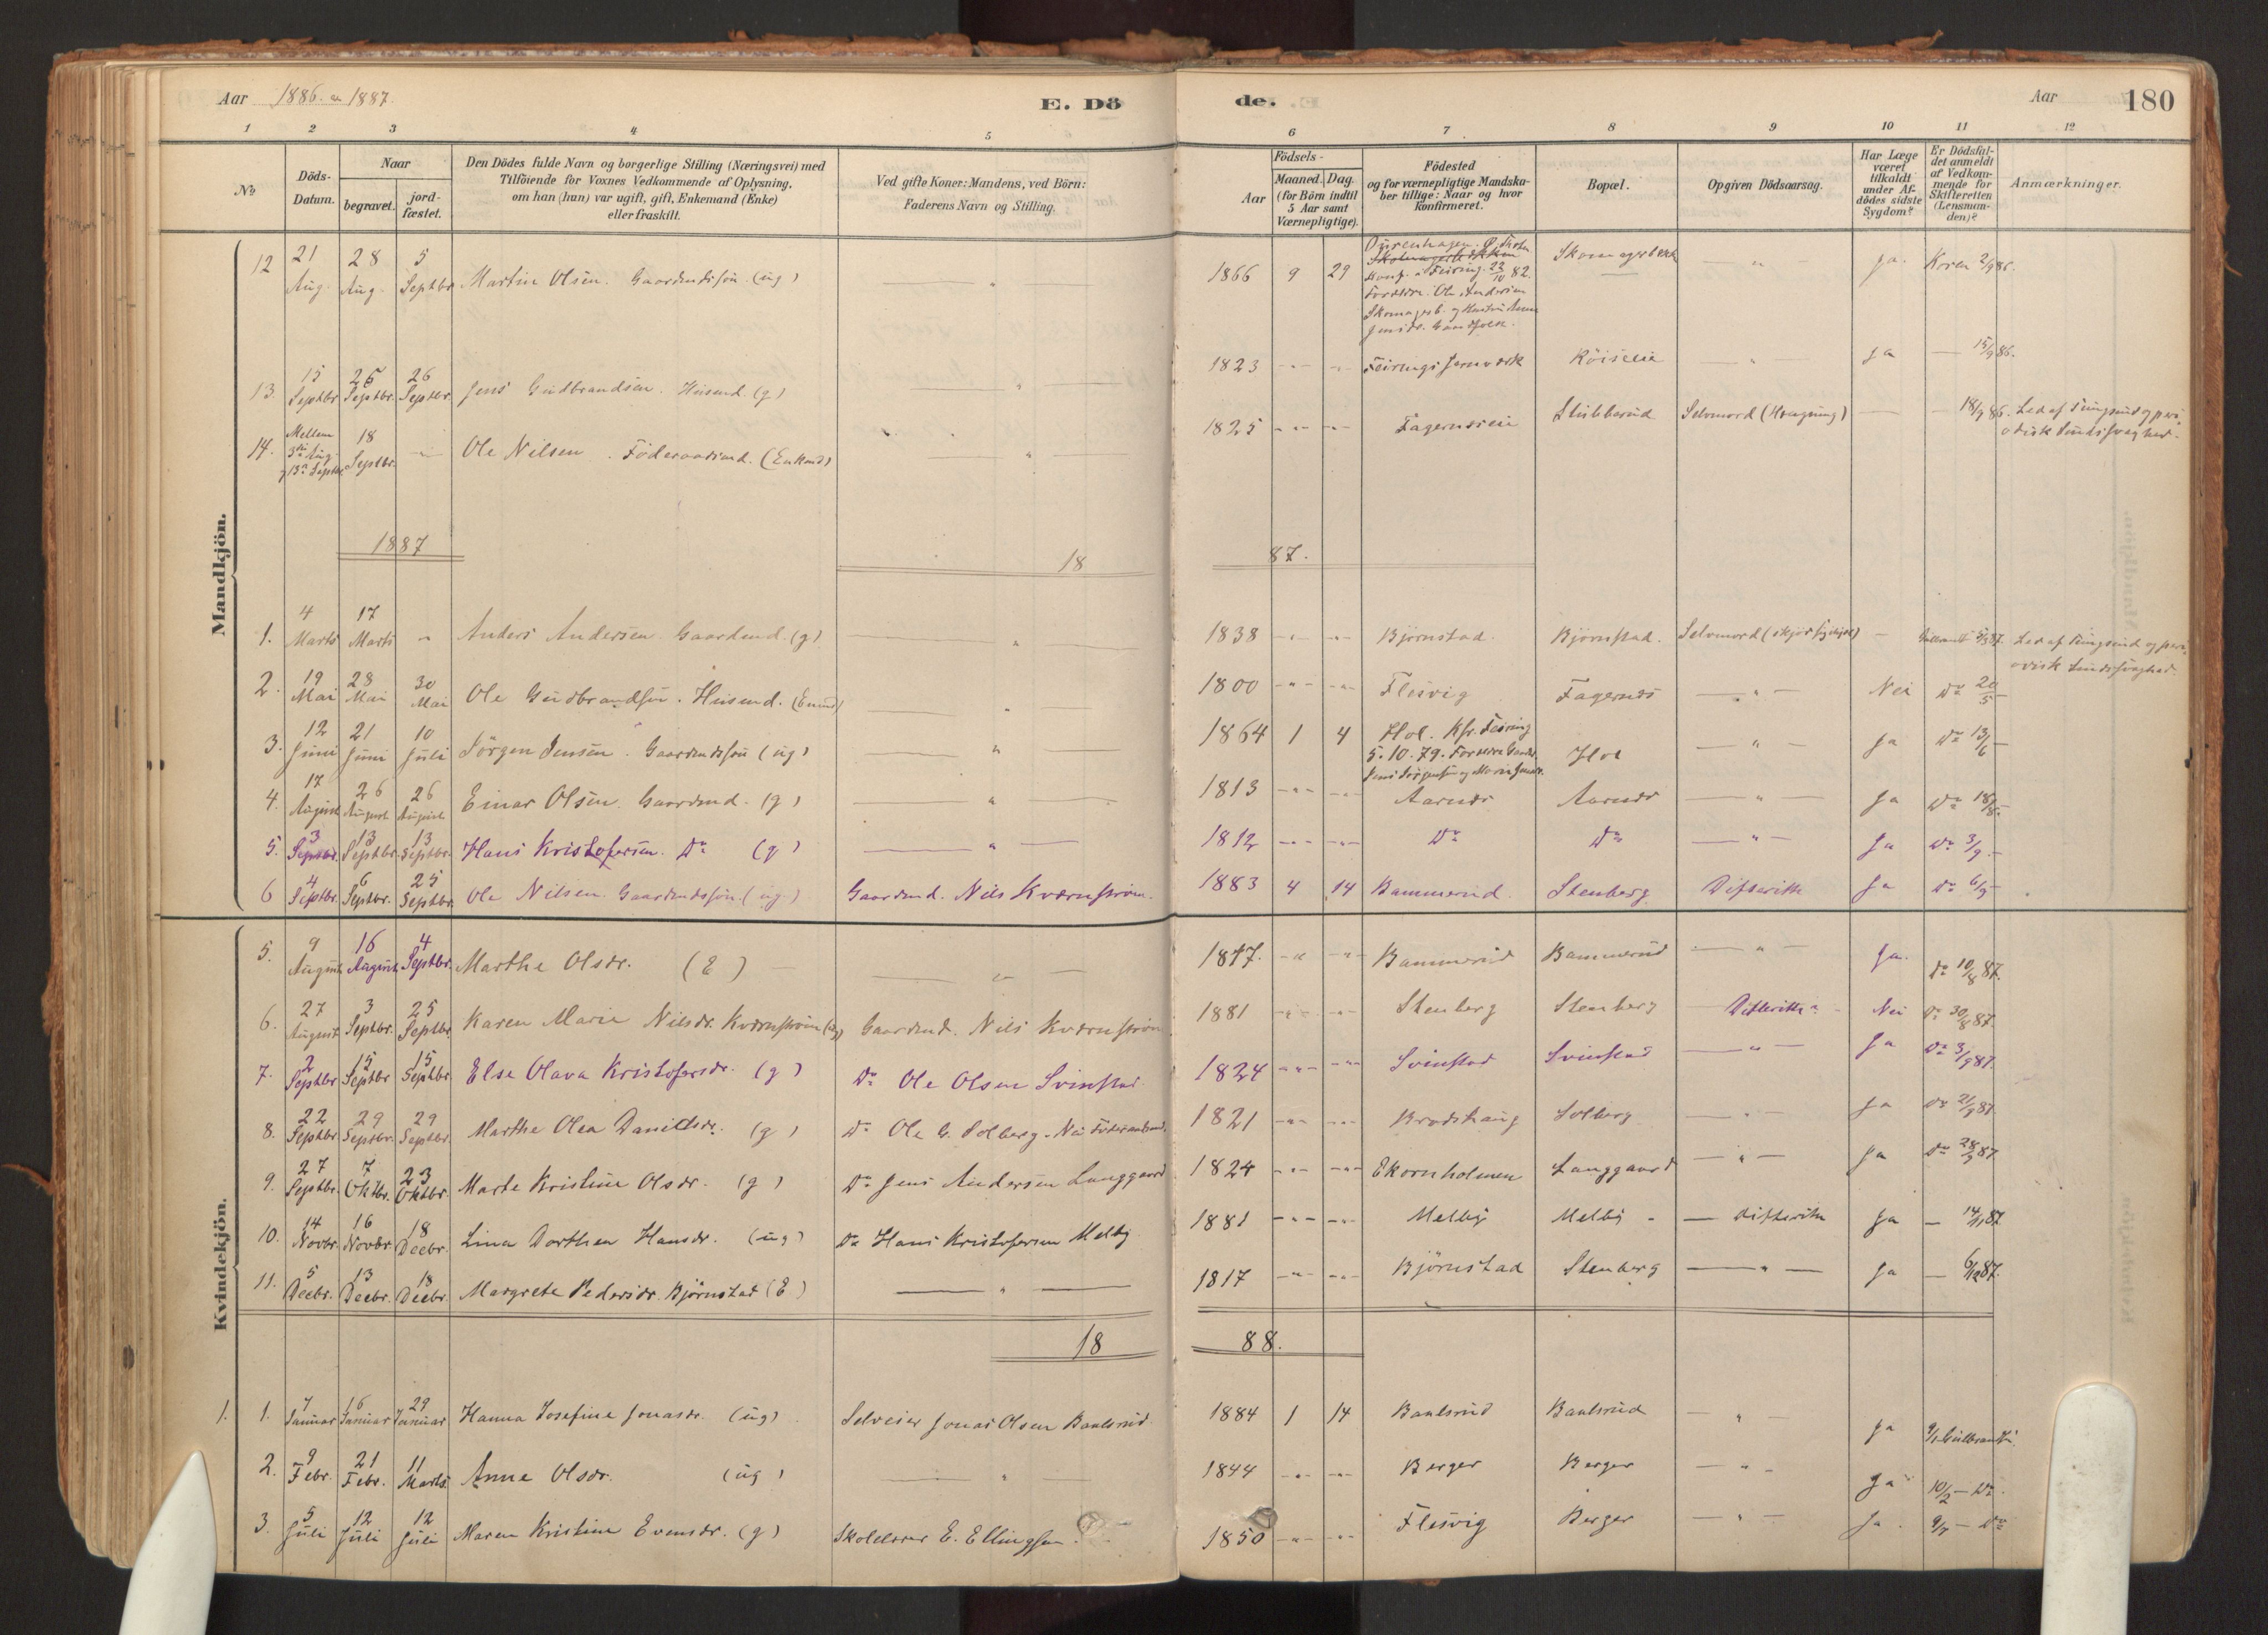 Aar 1886 1887.
E. Dö
de.
Aar 180
1 2 3 4 5 6 7 8 9 10 11 12
No
Döds-
Datum.
Naar
begravet.
jord-
fæstet.
Den Dödes fulde Navn og borgerlige Stilling (Næringsvei) med
Tilföiende for Voxnes Vedkommende af Oplysning,
om han (hun) var ugift, gift, Enkemand (Enke)
eller fraskilt.
Ved gifte Koner: Mandens, ved Börn:
Faderens Navn og Stilling.
Födsels-
Aar
Maaned. Dag
(for Börn indtil
5 Aar samt
Værnepligtige).
Födested
og for værnepligtige Mandska-
ber tillige: Naar og hvor
konfirmeret.
Bopæl.
Opgiven Dödsaarsag.
Har Læge
været
tilkaldt
under Af-
dödes sidste
Sygdom?
Er Dödsfal-
det anmeldt
af Vedkom-
mende for
Skifteretten
(Lensman-
den)?
Anmærkninger.
Mandkjön.
12 21 Aug. 28 Aug. 5 Septbr Martin Olsen. Gaardmdssön (ug) " 1866 9 29 Konf. i Feiring 22/10 82. Forældre: Ole Andersen Skomagerb. og Hustru " Ja. Koren 2/9 86.
13. 15 Septbr 25 Septbr. 26 Septbr. Jens Gudbrandsen. Husmd. (g) " 1823 - " - - " - Feirings Jernværk Röiselie " Ja 15/9 86.
14. Mellem 3die Aug. og 13de Septbr. 18 Septbr. - Ole Nilsen. Föderaadsmd. (Enkmd) " 1825 - " - - " - Stubberud Selvmord (Hængning) 18/9 86. Led af Tungsind og peri-
odisk Sindssvaghed.
1887
18 87.
1. 4 Marts 17 Marts " Anders Andersen Gaardmd. (g) " 1838 - " - - " - Björnstad. Björnstad. Selvmord Led af Tungsind og peri-
odisk Sindssvaghed.
2. 19 Mai 28 Mai 30 Mai Ole Gudbrandsen. Husmd. (Enkmd) " 1800 - " - - " - Flesvig Fagernæs " Nei Do 20/5 -
3. 12 Juni 21 Juni 10 Juli Jörgen Jensen. Gaardmdssön (ug) " 1864 1 4 Hol. Kfr. Feiring 5.10.79. Forældre Gaardm. Jens Jörgensen og Hol " Ja Do 13/6 -
4. 17 August 26 August 26 August Einar Olsen. Gaardmd. (g) " 1813 - " - - " - Aarnæs Aarnæs " Ja Do 18/8 -
5. 3 Septbr. 13 Septbr. 13 Septbr. Hans Kristofersen. Do (g) " 1812 - " - - " - Do Do " Ja Do 3/9 -
6 4 Septbr. 6 Septbr. 25 Septbr. Ole Nilsen Gaardmdssön (ug) Gaardmd. Nils Kværnström. 1883 4 14 Bammerud. Stenberg Difterith Ja Do 6/9 -
Kvindekjön.
5. 9 August 16 August 4 Septbr. Marthe Olsdr. (E) " 1817. - " - - " - Bammerud Bammerud " Ja. Do 10/8 87.
6. 27 August 3 Septbr. 25 Septbr Karen Marie Nilsdr. Kværnström (ug) Gaardmd. Nils Kværnström 1881 - " - - " - Stenberg Stenberg Difterith Nei Do 30/8 87.
7. 2 Septbr 15 Septbr 15 Septbr Else Olava Kristofersdr. (g) Do Ole Olsen Svinstad. 1824 - " - - " - Svinstad Svinstad " Ja Do 3/9 87.
8. 22 Septbr 29 Septbr. 29 Septbr. Marthe Olea Danielsdr. (g) Do Ole G. Solberg - Nu Föderaadsmd. 1821 - " - - " - Brodshaug Solberg " Ja Do 21/9 87
9. 27 Septbr. 7 Oktbr. 23 Oktbr. Marte Kristine Olsdr. (g) Do Jens Andersen Langgaard 1824 - " - - " - Ekornholmen Langgaard " Ja Do 28/9 87
10. 14 Novbr. 16 Novbr. 18 Decbr. Lina Dorthea Hansdr. (ug) Do Hans Kristofersen Melby. 1881 - " - - " - Melby Melby Difterith Ja 14/11 87
11. 5 Decbr. 13 Decbr. 18 Decbr. Margrete Pedersdr. Björnstad (E) " 1817 - " - - " - Björnstad Stenberg " Ja 6/12 87.
18 88.
1. 1. 7 Januar 16 Januar 29 Januar Hanna Josefine Jonasdr. (ug) Selveier Jonas Olsen Baalsrud. 1884 1 14 Baalsrud Baalsrud " Ja 9/1 Gulbrandsen.
2. 9 Febr. 21 Febr. 11 Marts. Anne Olsdr. (ug) " 1844 - " - - " - Berger Berger " Ja 10/2 - Do.
3. 5 Juli 12 Juli 12 Juli Maren Kristine Evensdr. (g) Skolelærer E. Ellingsen. 1850 - " - - " - Flesvig Berger " Ja. 9/7 - Do